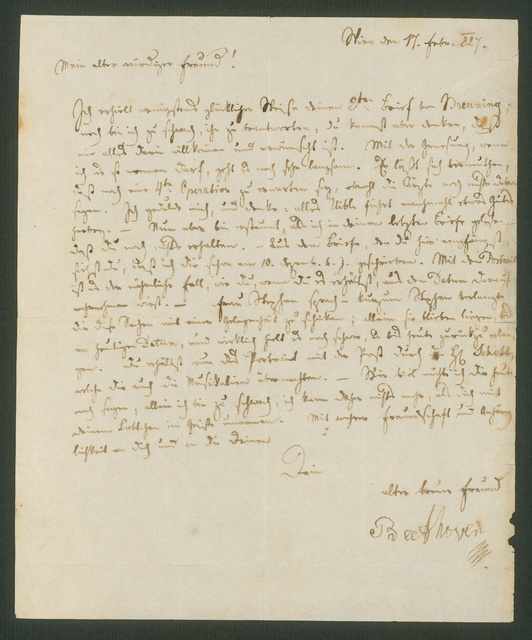 Wien den 17. Febr. 1827.
Mein alter würdiger Freund!
Ich erhielt wenigstens glücklicher Weise deinen 2ten Brief von Breuning,
noch bin ich zu schwach ihn zu beantworten, du kannst aber denken, daß
mir alles darin willkommen und erwünscht ist. Mit der Genesung, wenn
ich es so nennen darf, geht es noch sehr langsam. Es läßt sich vermuthen,
daß noch eine 4te Operation zu erwarten sey, obwohl die Ärzte noch nichts davon
sagen. Ich gedulde mich, und denke: alles Üble führt manchmal etwas Gutes
herbey. – Nun aber bin erstaunt, als ich in deinem letzten Briefe gelesen,
daß du noch nichts erhalten. – Aus dem Briefe den du hier empfängst
siehst du, daß ich dir schon am 10. Dezemb. v. J. geschrieben. Mit dem Portrait
ist es der nähmliche Fall, wie du, wenn du es erhältst, aus dem Datum darauf
wahrnehmen wirst. – Frau Stephan sprach – kurzum Stephan verlangte
dir diese Sachen mit einer Gelegenheit zu schicken; allein sie blieben liegen bis
am heutigen Datum, und wirklich hielt es noch schwer, es bis heute zurück zu erlan
gen. Du erhältst nun das Portrait mit der Post durch die H. Schott,
welche dir auch die Musikalien übermachten. – Wie viel möchte ich dir heute
noch sagen; allein ich bin zu schwach, ich kann daher nichts mehr, als dich mit
deinem Lorchen im Geiste umarmen. Mit wahrer Freundschaft und Anhäng
lichkeit an dich und an die Deinen
Dein
alter treuer Freund
Beethoven